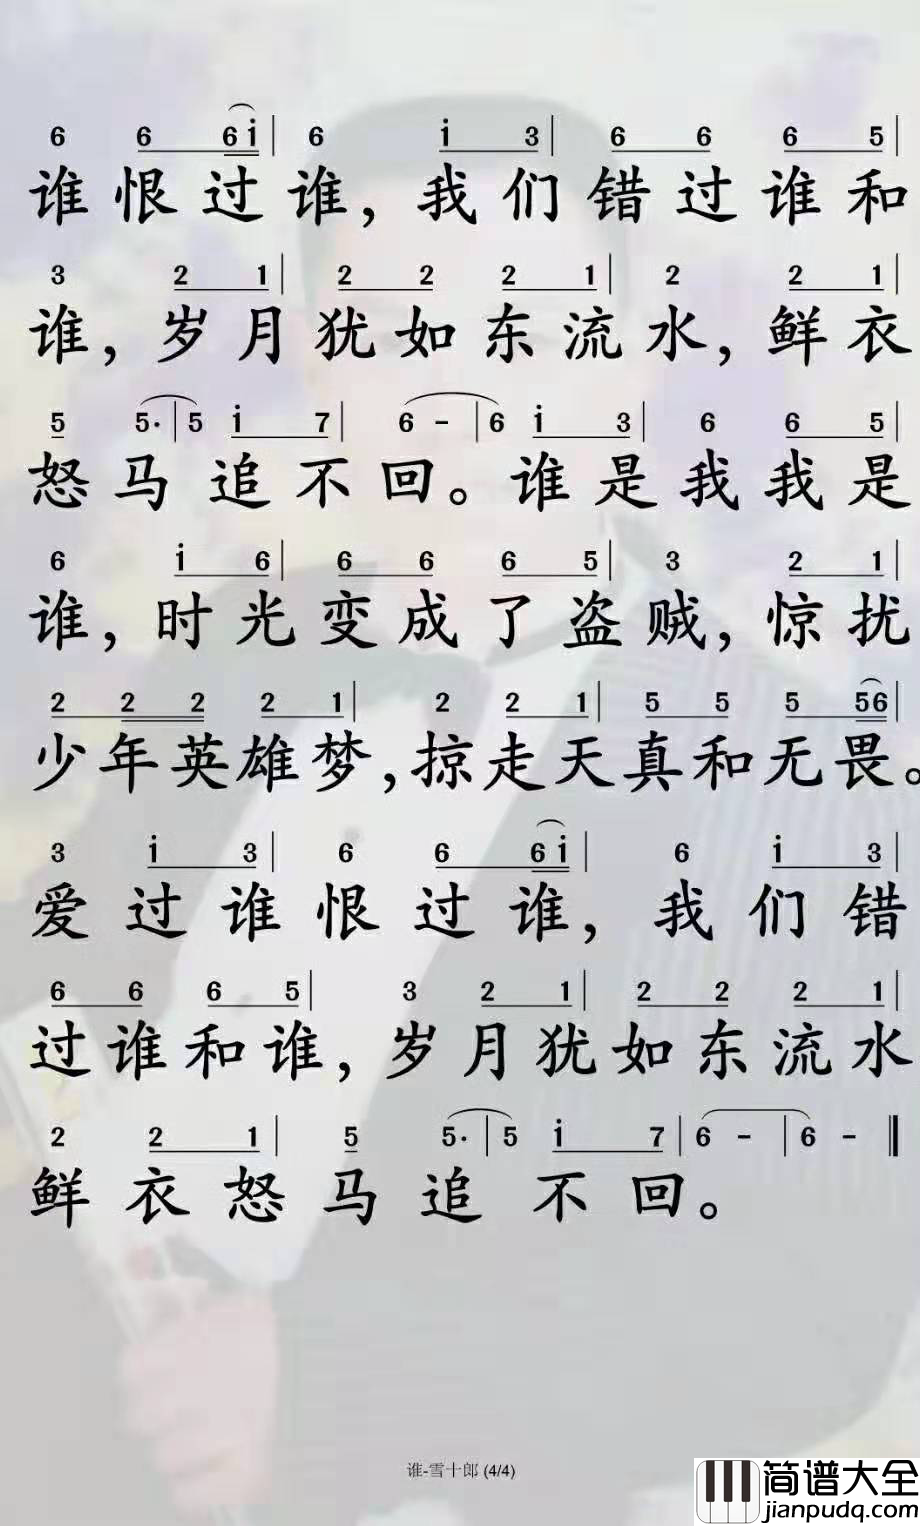 6 6 6 i | 6 i 3 | 6 6 6 5 |
谁恨过谁，我们错过谁和
3 2 1 | 2 2 2 1 | 2 2 1 |
谁，岁月犹如东流水，鲜衣
5 5· | 5 i 7 | 6 – | 6 i 3 | 6 6 5 |
怒马追不回。谁是我我是
6 i 6 | 6 6 6 5 | 3 2 1 |
谁，时光变成了盗贼，惊扰
2 2 2 2 1 | 2 2 1 | 5 5 5 5 6 |
少年英雄梦，掠走天真和无畏。
3 i 3 | 6 6 6 i | 6 i 3 |
爱过谁恨过谁，我们错
6 6 6 5 | 3 2 1 | 2 2 2 1 |
过谁和谁，岁月犹如东流水
2 2 1 | 5 5· | 5 i 7 | 6 – | 6 – ‖
鲜衣怒马追不回。
谁-雪十郎 (4/4)
简谱大全
jianpudq.com